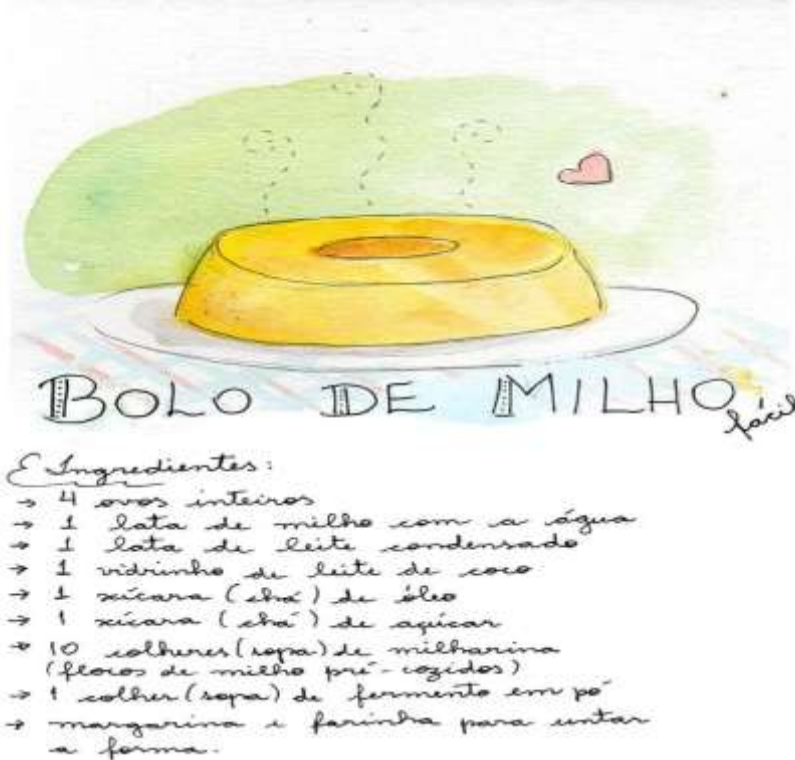 BOLO DE MILHO
fácil
Ingredientes:
→ 4 ovos inteiros
→ 1 lata de milho com a água
→ 1 lata de leite condensado
→ 1 vidrinho de leite de coco
→ 1 xícara (chá) de óleo
→ 1 xícara (chá) de açúcar
→ 10 colheres (sopa) de milharina
(flocos de milho pré-cozidos)
→ 1 colher (sopa) de fermento em pó
→ margarina e farinha para untar
a forma.